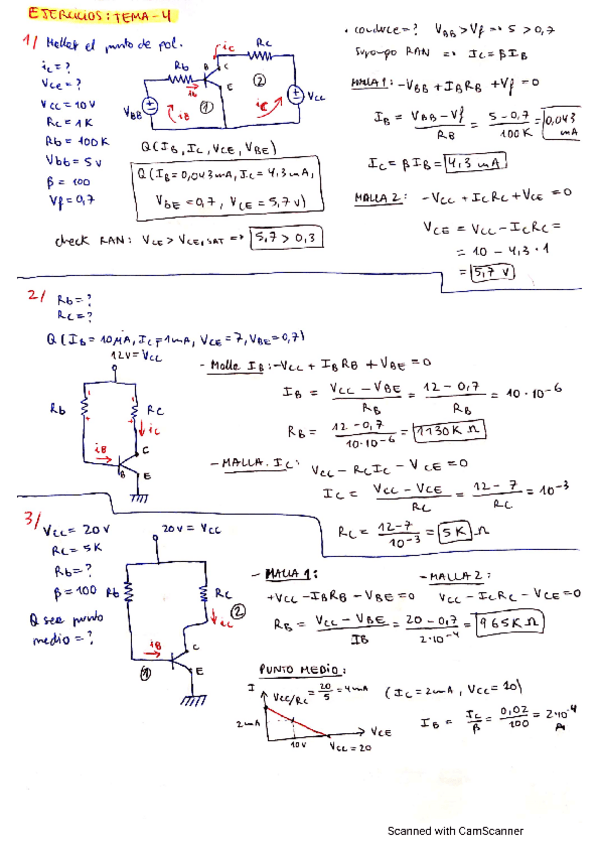 EJERCICIOS: TEMA-4
1/ Hallar el punto de pol.
ic=?
Vce=?
Vcc=10V
Rc=1K
Rb=100K
Vbb=5V
β=100
Vf=0,7
Rb
B
C
E
ic
Rc
iB
VBB
iB
①
②
ic
Vcc
Q(IB, IC, VCE, VBE)
Q(IB=0,043mA, IC=4,3mA,
VbE=0,7, VCE=5,7V)
check RAN: VCE>VCE,SAT => 5,7>0,3
• conduce=? VBB>Vf => 5>0,7
Supongo RAN => IC=βIB
MALLA 1: -VBB+IBRB+Vf=0
IB = VBB-Vf / RB = 5-0,7 / 100K = 0,043 mA
IC=βIB=4,3mA
MALLA 2: -VCC+ICRC+VCE=0
VCE=VCC-ICRC=
=10-4,3·1
=5,7V
2/ Rb=?
Rc=?
Q(IB=10µA, IC=1mA, VCE=7, VBE=0,7)
12V=Vcc
Rb
Rc
ic
iB
C
B
E
- Malla IB: -VCC+IBRB+VBE=0
IB = VCC-VBE / RB = 12-0,7 / RB = 10·10-6
RB = 12-0,7 / 10·10-6 = 1130KΩ
- MALLA. IC: VCC-RCIC-VCE=0
IC = VCC-VCE / RC = 12-7 / RC = 10-3
RC = 12-7 / 10-3 = 5K Ω
3/ Vcc=20V
Rc=5K
Rb=?
β=100
Q see punto
medio=?
20V=Vcc
Rb
Rc
②
ic
iB
①
C
E
- MALLA 1:
+VCC-IBRB-VBE=0
RB = VCC-VBE / IB = 20-0,7 / 2·10-4 = 965KΩ
- MALLA 2:
VCC-ICRC-VCE=0
PUNTO MEDIO:
I
VCC/RC = 20/5 = 4mA
(IC=2mA, VCC=10)
2mA
10V
VCE
VCC=20
IB = IC/β = 0,02/100 = 2·10-4 A
Scanned with CamScanner